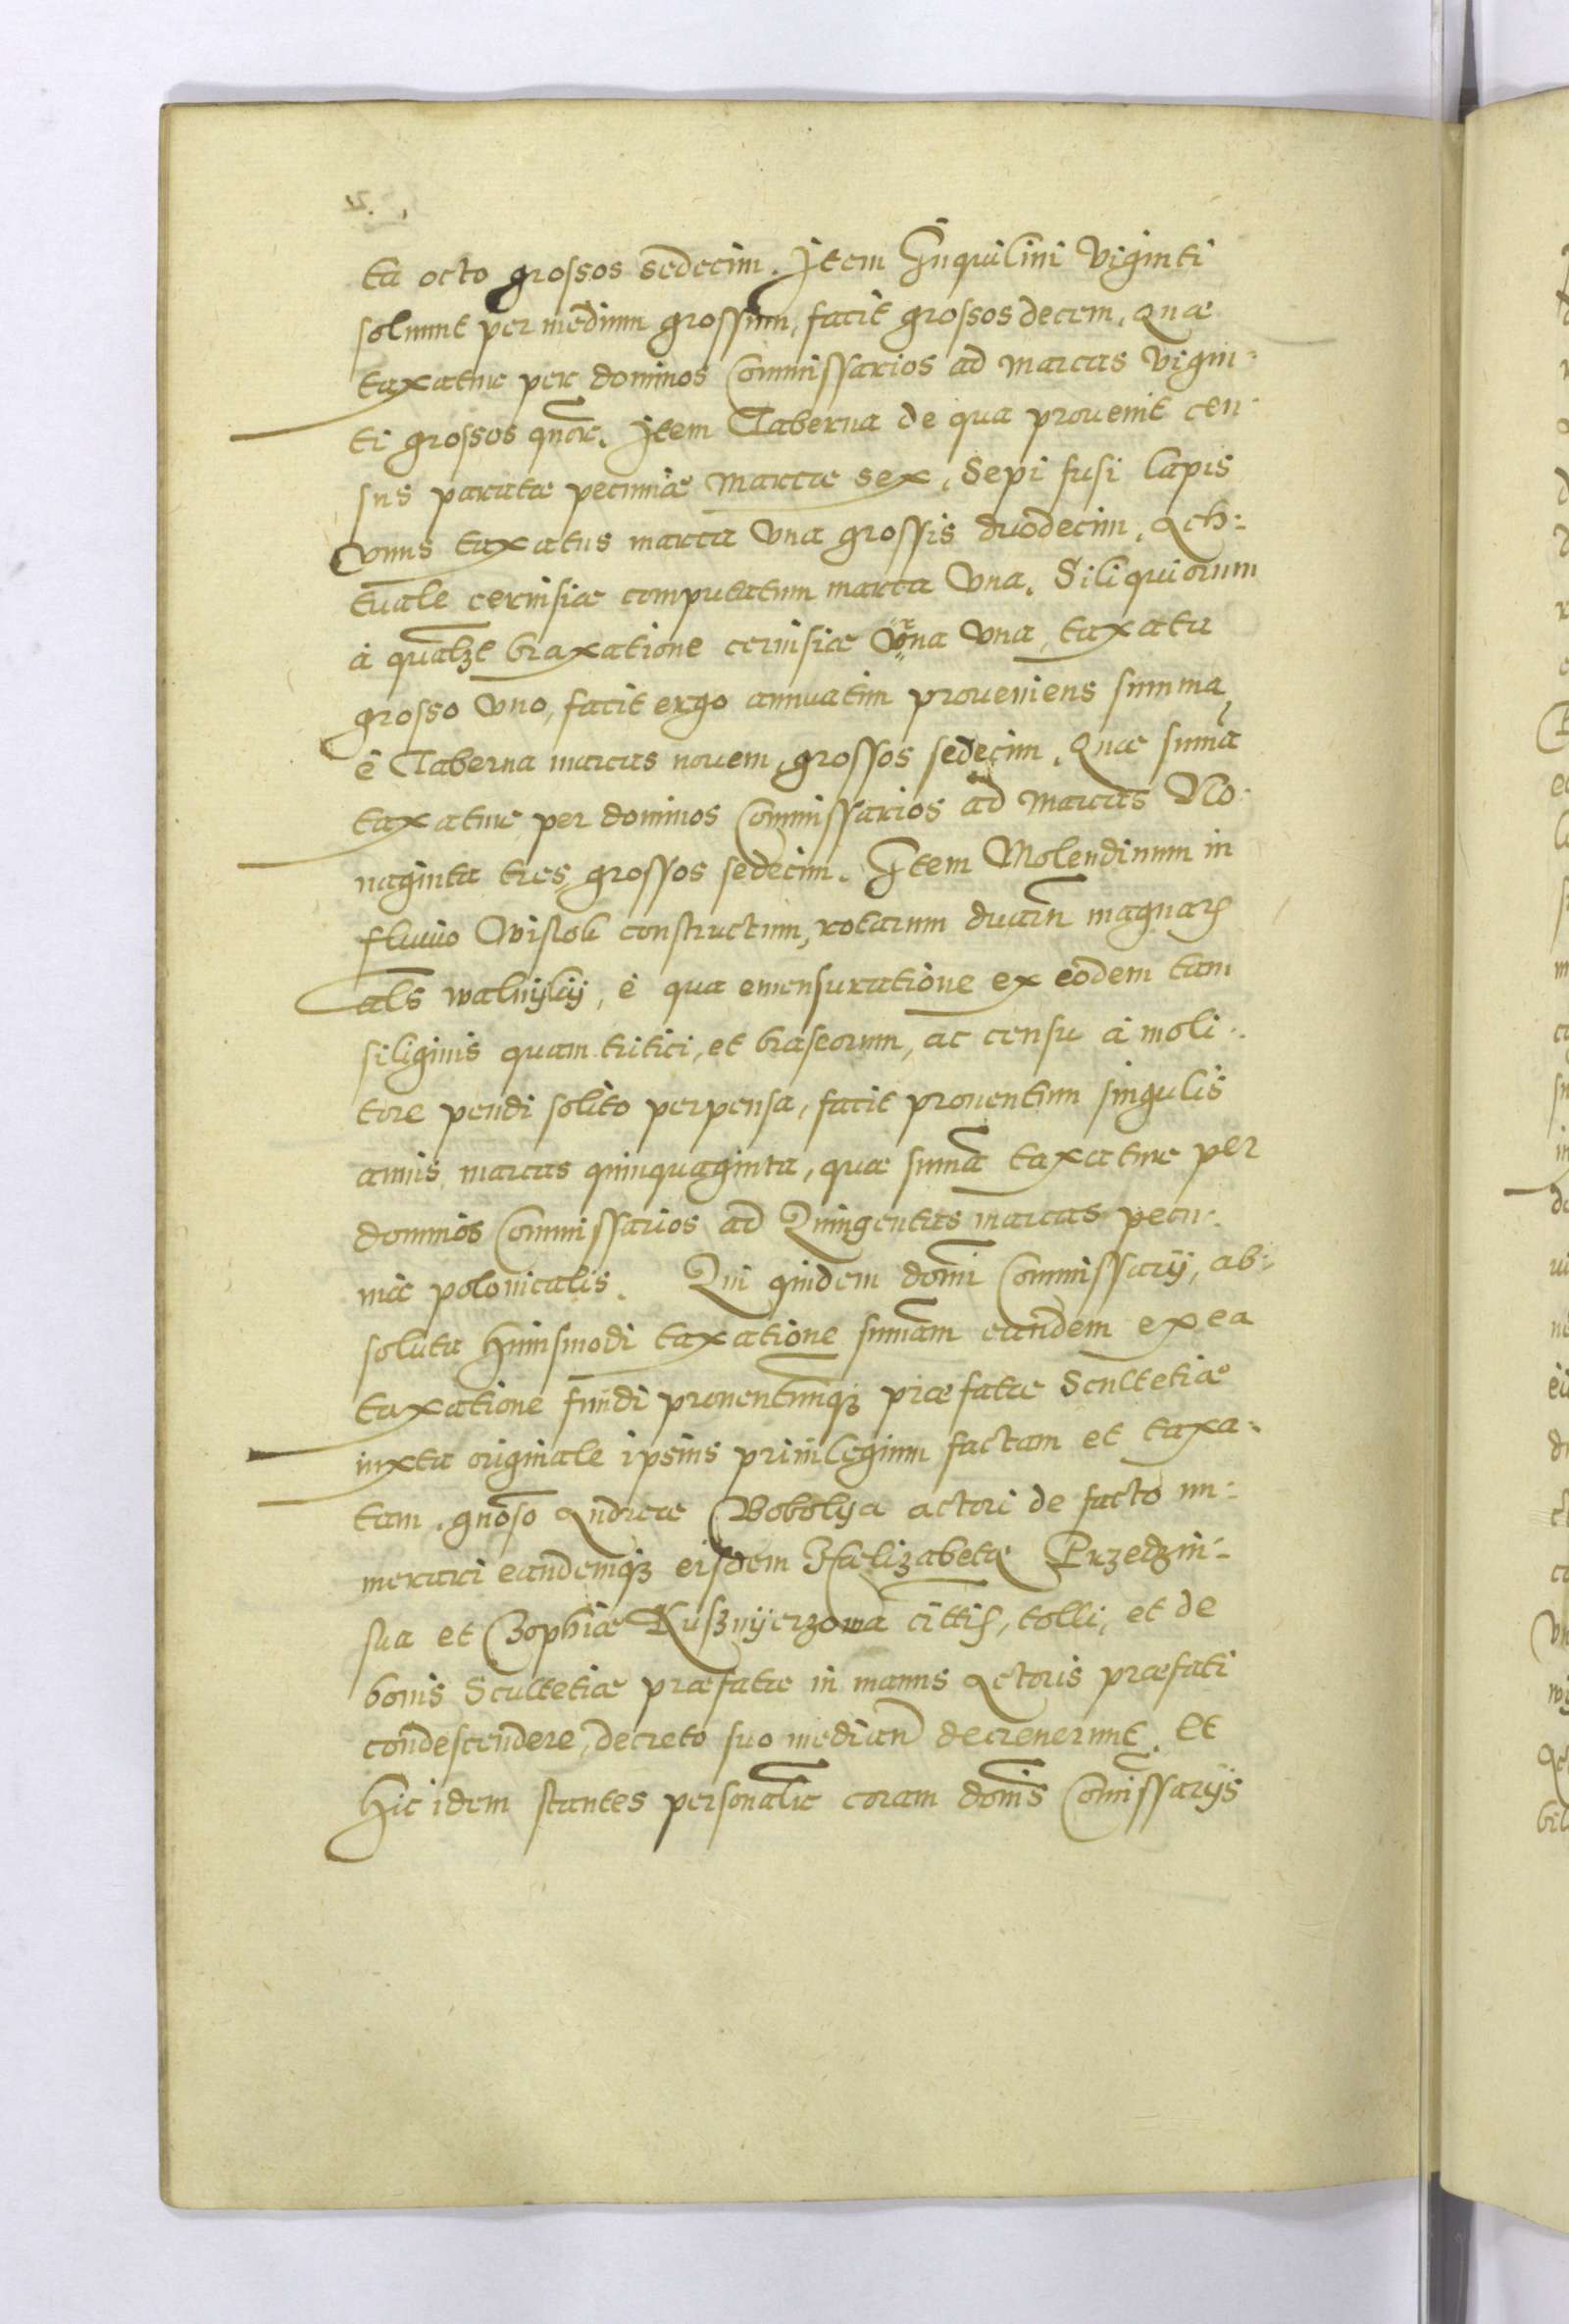 ta octo grossos sedecim. Item Inquilini viginti
soluunt per medium grossum, facit grossos decem, Quæ
taxatur per dominos Commissarios ad marcas vigin:
ti grossos quor. Item Taberna de qua prouenit cen:
sus paratæ pecuniæ marcæ sex, Sepi fusi lapis
vnus taxatus marca vna grossis duodecim, Ach:
tuale ceruisiæ computatum marca vna. Siliquiorum
à qualzt braxatione ceruisiæ vrna vna, taxata
grosso vno, facit ergo annuatim proueniens summa
è Taberna marcas nouem, grossos sedecim. Quæ suma
taxatur per dominos Commissarios ad marcas No:
naginta tres, grossos sedecim. Item Molendinum in
fluuio Wislok constructum, rotarum duarū magnarum
als walnÿkÿ, è qua emensuratione ex eodem tam
siliginis quam tritici, et braseorum, ac censu à moli:
tore pendi solito perpensa, facit prouentum singulis
annis marcas quinquaginta, quæ suma taxatur per
dominos Commissarios ad Quingentas marcas pecu:
niæ polonicalis. Qui quidem domi Commissarÿ, ab:
soluta huiusmodi taxatione sumam eandem ex ea
taxatione fundi prouentumqȝ præfatæ Scultetiæ
iuxta originale ipsius priuilegium factam et taxa:
tam, gnoso Andreæ Bobolya actori de facto nu:
merari eandemqȝ eisdem Halizabetæ Przedzin:
sua et Zophiæ Kusznÿerzowa cittis, tolli, et de
bonis Scultetiæ præfatæ in manus Actoris præfati
condescendere, decreto suo median decreuerunt. Et
Hic idem stantes personalir coram domis Comissarÿs